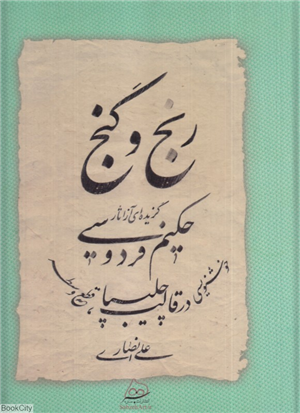 رنج و گنج
گزیده‌ای از آثار
حکیم فردوسی
در قالب چلیپا
علی انصاری
BookCity